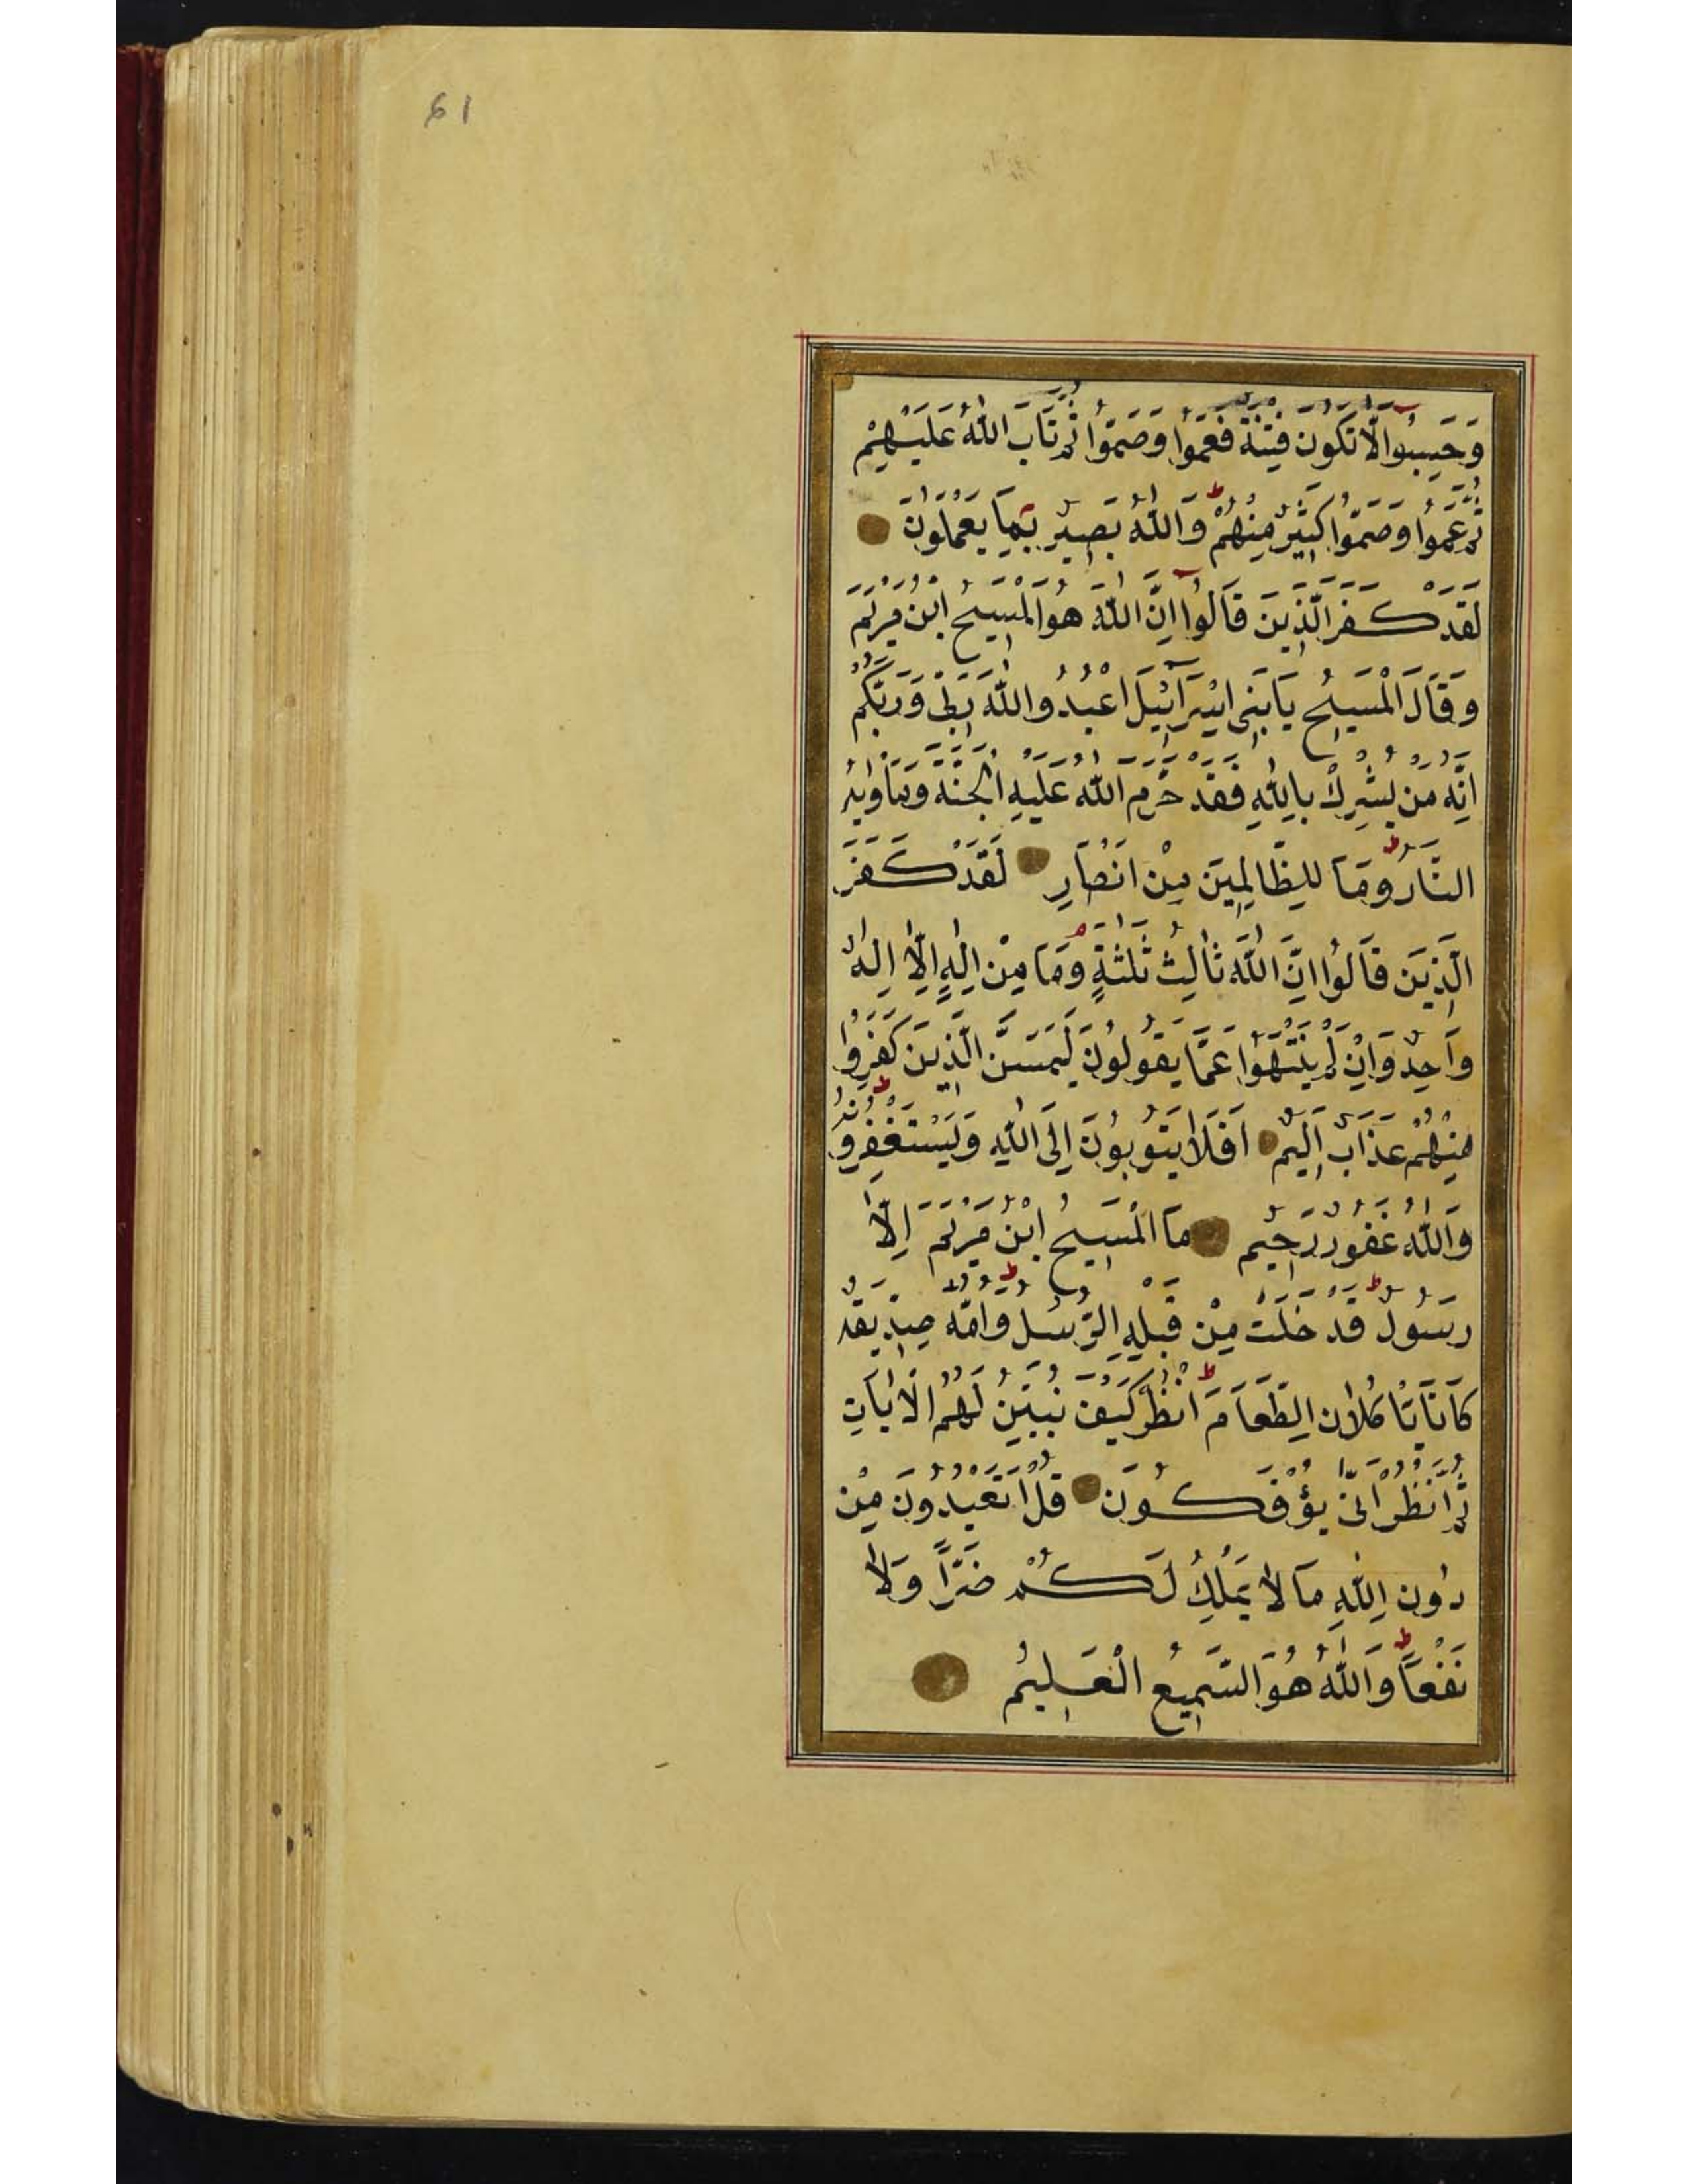 61
وَحَسِبُوا اَلَّا تَكُونَ فِتْنَةٌ فَعَمُوا وَصَمُّوا ثُمَّ تَابَ اللّٰهُ عَلَيْهِمْ
ثُمَّ عَمُوا وَصَمُّوا كَثِيرٌ مِنْهُمْ ط وَاللّٰهُ بَصِيرٌ بِمَا يَعْمَلُونَ
لَقَدْ كَفَرَ الَّذِينَ قَالُوا اِنَّ اللّٰهَ هُوَ الْمَسِيحُ ابْنُ مَرْيَمَ
وَقَالَ الْمَسِيحُ يَا بَنِى اِسْرَآئِيلَ اعْبُدُوا اللّٰهَ رَبِّى وَرَبَّكُمْ
اِنَّهُ مَنْ يُشْرِكْ بِاللّٰهِ فَقَدْ حَرَّمَ اللّٰهُ عَلَيْهِ الْجَنَّةَ وَمَأْوٰيهُ
النَّارُ ط وَمَا لِلظَّالِمِينَ مِنْ اَنْصَارٍ لَقَدْ كَفَرَ
الَّذِينَ قَالُوا اِنَّ اللّٰهَ ثَالِثُ ثَلٰثَةٍ م وَمَا مِنْ اِلٰهٍ اِلَّا اِلٰهٌ
وَاحِدٌ وَاِنْ لَمْ يَنْتَهُوا عَمَّا يَقُولُونَ لَيَمَسَّنَّ الَّذِينَ كَفَرُوا
مِنْهُمْ عَذَابٌ اَلِيمٌ اَفَلَا يَتُوبُونَ اِلَى اللّٰهِ وَيَسْتَغْفِرُونَهُ ط
وَاللّٰهُ غَفُورٌ رَحِيمٌ مَا الْمَسِيحُ ابْنُ مَرْيَمَ اِلَّا
رَسُولٌ ط قَدْ خَلَتْ مِنْ قَبْلِهِ الرُّسُلُ ط وَاُمُّهُ صِدِّيقَةٌ
كَانَا يَأْكُلَانِ الطَّعَامَ ط اُنْظُرْ كَيْفَ نُبَيِّنُ لَهُمُ الْاٰيَاتِ
ثُمَّ انْظُرْ اَنّٰى يُؤْفَكُونَ قُلْ اَتَعْبُدُونَ مِنْ
دُونِ اللّٰهِ مَا لَا يَمْلِكُ لَكُمْ ضَرًّا وَلَا
نَفْعًا ط وَاللّٰهُ هُوَ السَّمِيعُ الْعَلِيمُ